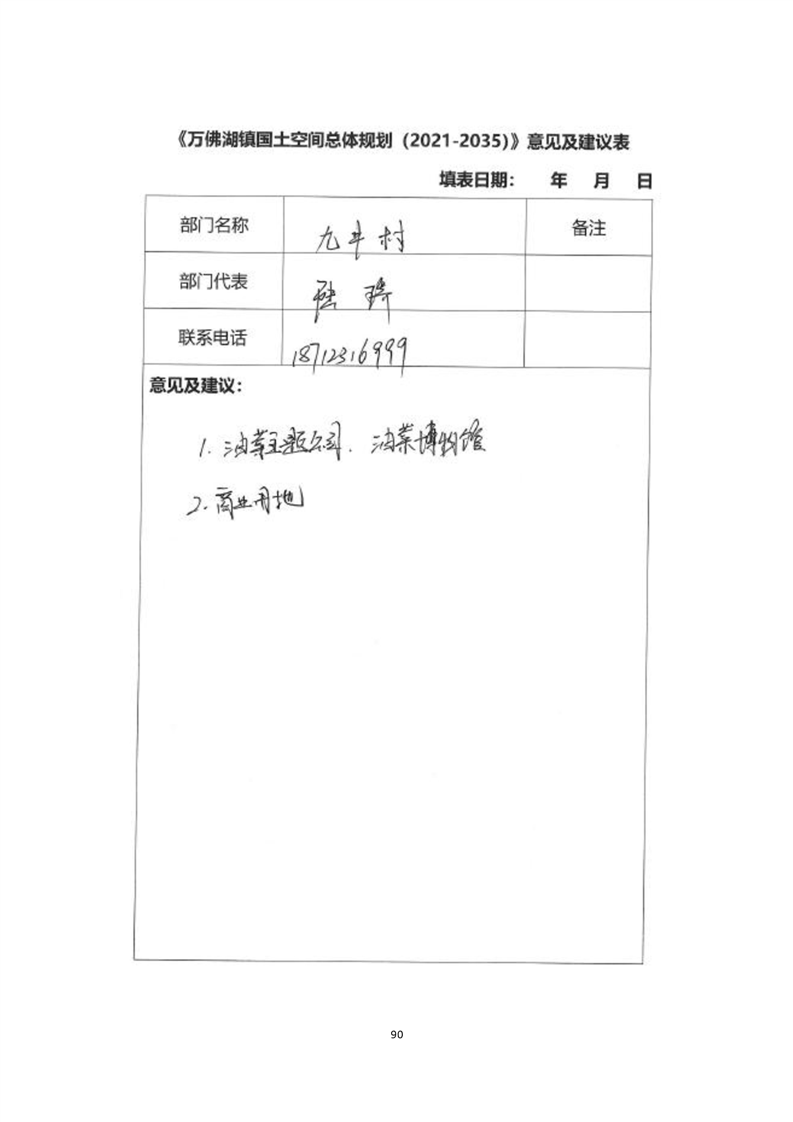 《万佛湖镇国土空间总体规划（2021-2035）》意见及建议表
填表日期： 年 月 日
部门名称 九井村 备注
部门代表 陆琦
联系电话 18712316999
意见及建议：
1. 油菜主题公园、油菜博物馆
2. 商业用地
90